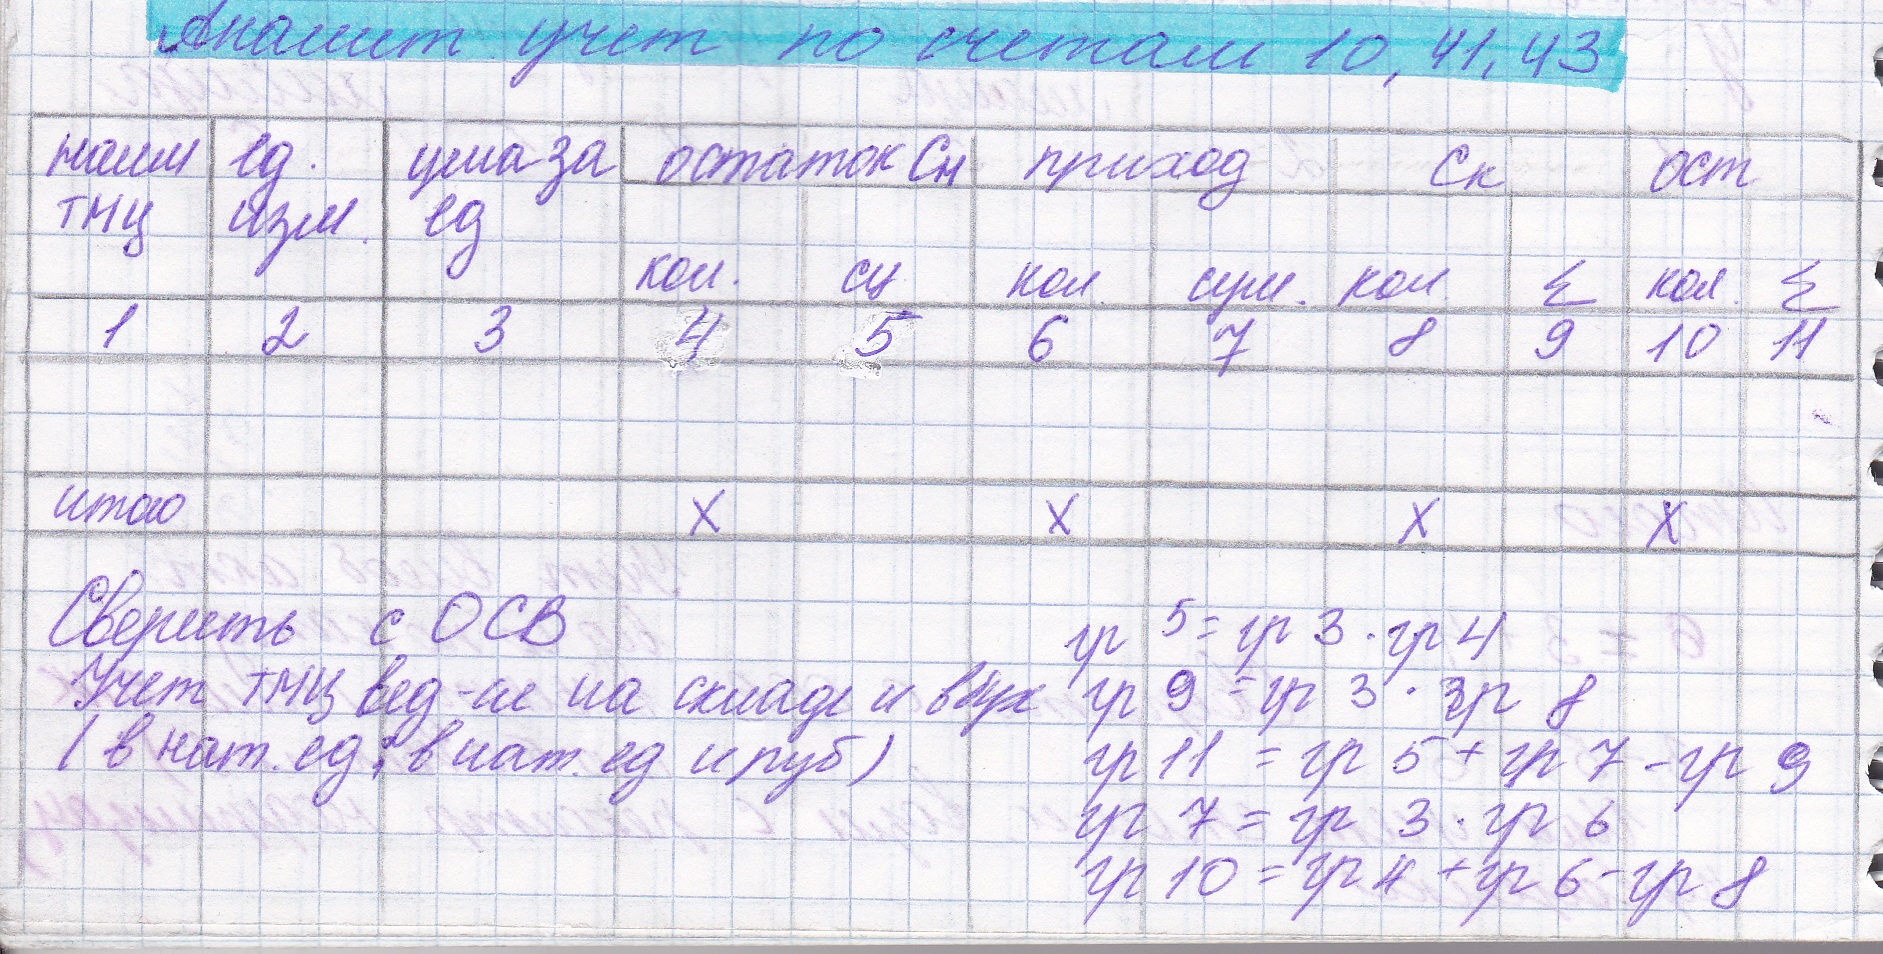 Аналит учет по счетам 10, 41, 43
наим ед. цена за остаток Сн приход Ск ост
ТМЦ изм. ед
кол. сц кол. сум. кол. Σ кол. Σ
1 2 3 4 5 6 7 8 9 10 11
итого X X X X
Сверить с ОСВ
гр 5 = гр 3 · гр 4
Учет ТМЦ вед-ся на складе и в бух
гр 9 = гр 3 · гр 8
(в нат. ед; в нат. ед и руб)
гр 11 = гр 5 + гр 7 - гр 9
гр 7 = гр 3 · гр 6
гр 10 = гр 4 + гр 6 - гр 8